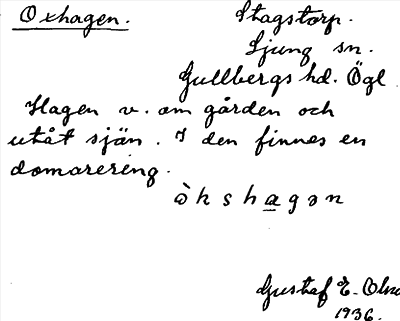 Oxhagen.
Stagstorp.
Ljung sn.
Gullbergs hd. Ögl
Hagen v. om gården och
utåt sjän. I den finnes en
domarering.
òkshagən
Gustaf E.
1936.